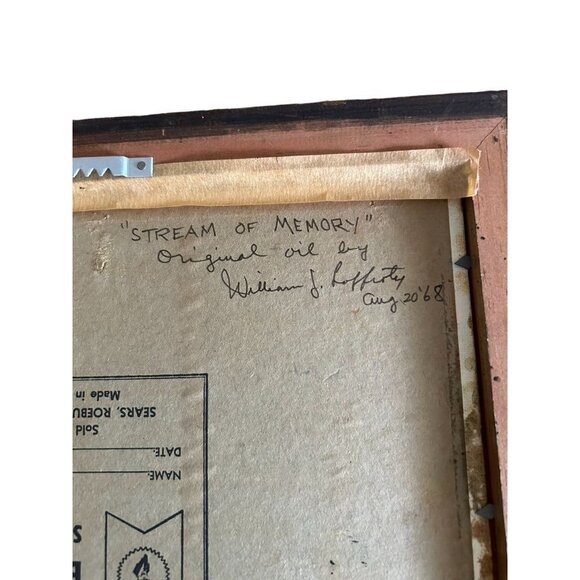 "STREAM OF MEMORY"
Original oil by
William J. Lafferty
Aug 20 '68
NAME:
DATE:
Sold
SEARS, ROEBU
Made in